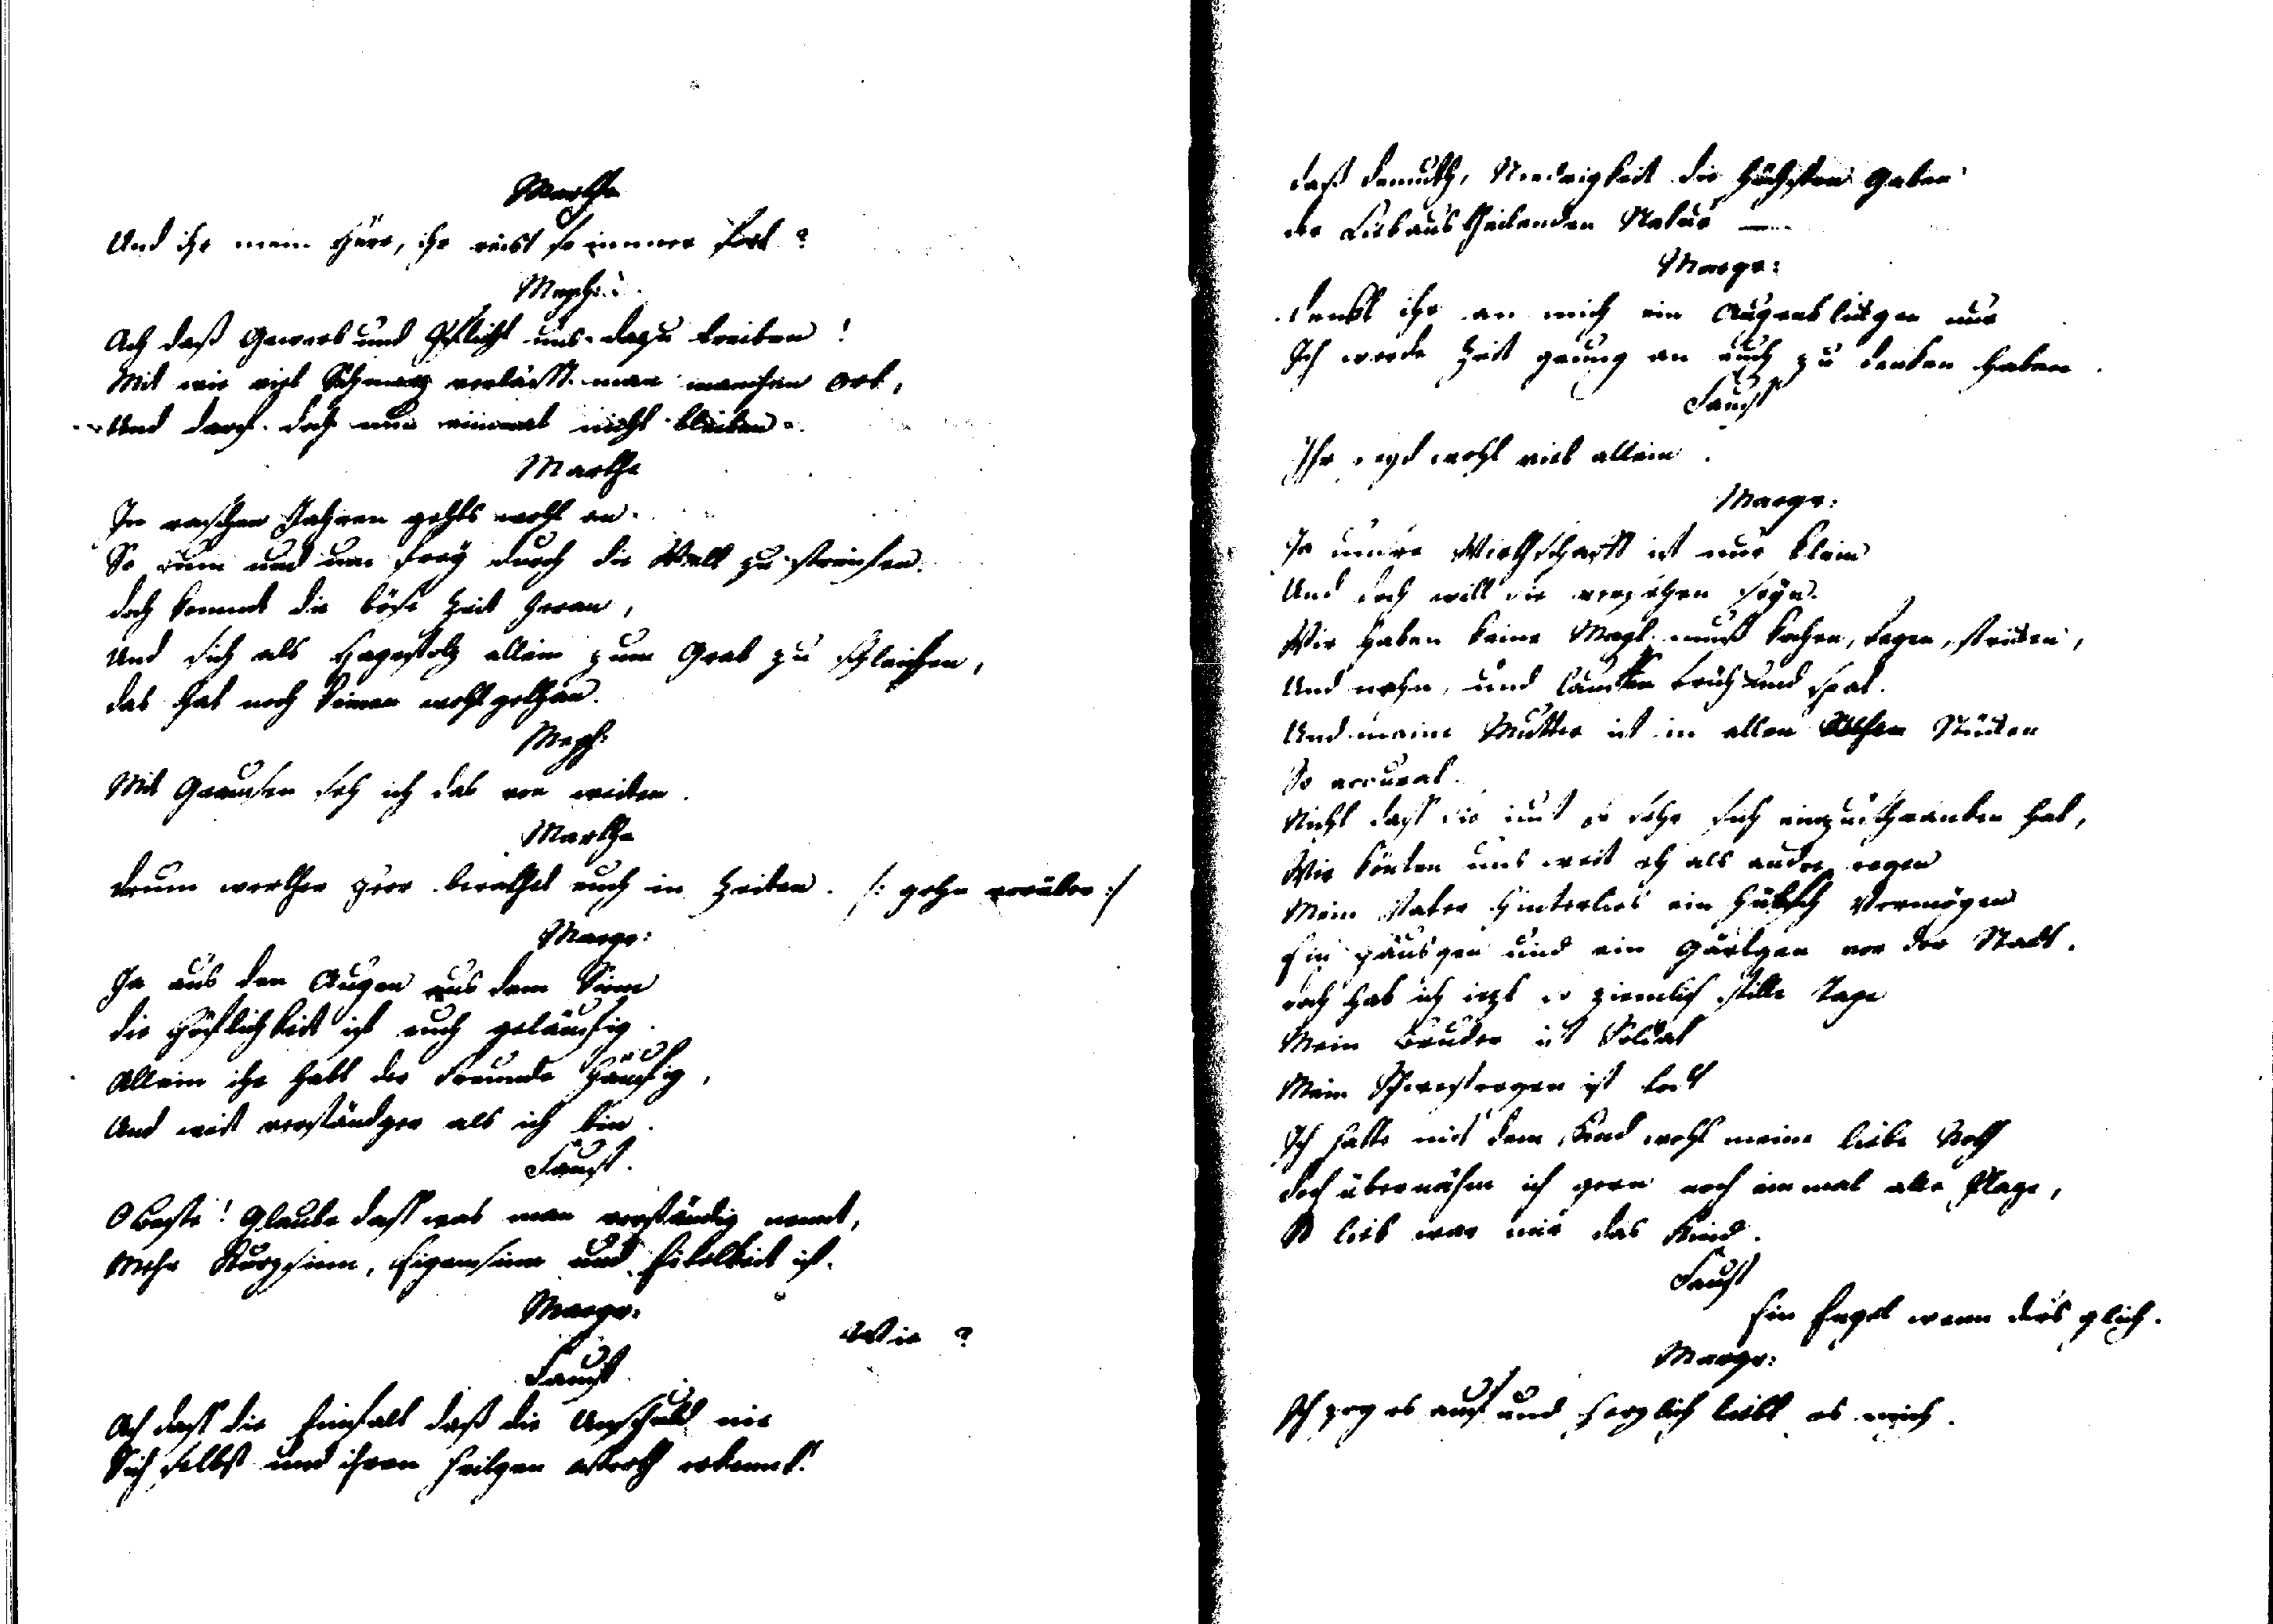 Marthe
Und ihr mein Herr, ihr reist so immer fort?
Meph:
Ach daß Gewerb und Pflicht uns dazu treiben!
Mit wie viel Schmerz verlässt man manchen Ort,
Und darf doch nun einmal nicht bleiben.
Marthe
In raschen Jahren gehts wohl an
So um und um frey durch die Welt zu streifen.
doch kommt die böse Zeit heran,
Und sich als Hagestolz allein zum Grab zu schleichen,
das hat noch keinem wohl gethan.
Meph:
Mit Grausen seh ich das von weiten.
Marthe
drum werther Herr berathet euch in Zeiten. /: gehn vorüber :/
Margr:
Ja aus den Augen aus dem Sinn
die Höflichkeit ist euch geläufig.
Allein ihr habt der Freunde häufig,
Und weit verständger als ich bin.
Faust.
O Beste! Glaube dass was man verständig nennt,
Mehr Kurzsinn, Eigensinn und Eitelkeit ist.
Margr:
Wie?
Faust
Ach dass die Einfalt daß die Unschuld nie
Sich selbst und ihren heilgen Werth erkennt!
daß Demuth, Niedrigkeit die höchsten Gaben
der Liebaustheilenden Natur —
Margr:
denkt ihr an mich ein Augenblickgen nur
Ich werde Zeit genug an euch zu denken haben.
Faust
Ihr seyd wohl viel allein.
Margr:
Ja unsre Wirthschafft ist nur klein
Und doch will sie versehen seyn.
Wir haben keine Magd, muß kochen, fegen, stricken,
Und nehn, und lauffen früh und spat.
Und meine Mutter ist in allen Stücken
So accurat.
Nicht dass sie iust so sehr sich einzuschräncken hat,
Wir könten uns weit eh als andre regen
Mein Vater hinterlies ein hübsch Vermögen
Ein Häusgen und ein Gärtgen vor der Stadt.
doch hab ich iezt so ziemlich stille Tage
Mein Bruder ist Soldat
Mein Schwestergen ist todt
Ich hatte mit dem Kind wohl meine liebe Noth
doch übernähm ich gern noch einmal alle Plage,
So lieb war mir das Kind.
Faust
Ein Engel wenn dirs glich.
Margr:
Ich zog es auf und herzlich liebt es mich.